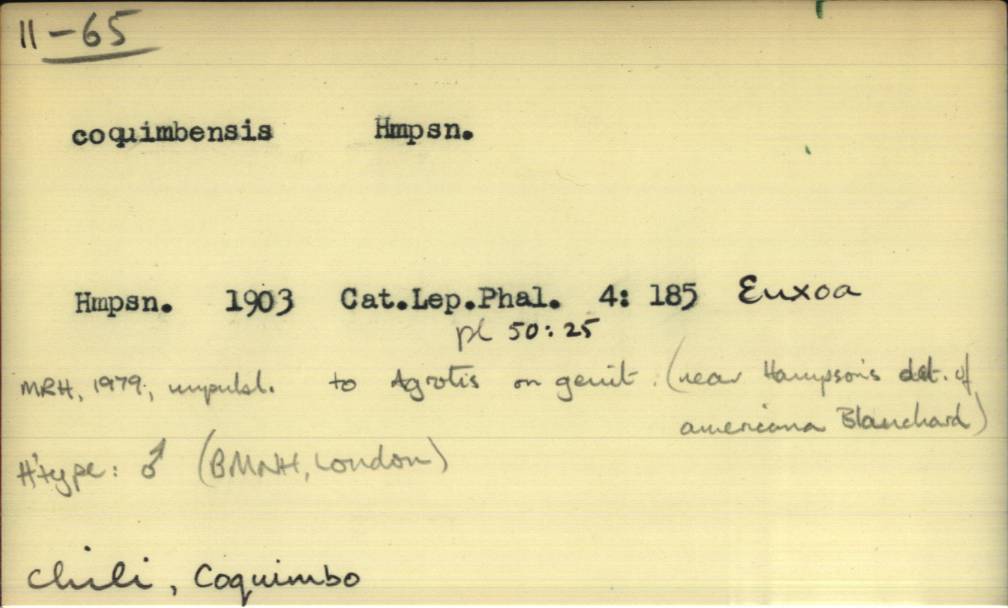 11-65
coquimbensis Hmpsn.
Hmpsn. 1903 Cat.Lep.Phal. 4: 185 Euxoa
pl 50:25
MRH, 1979, unpubl. to Agrotis on genit. (near Hampson's det. of
americana Blanchard)
H'type: ♂ (BMNH, London)
Chili, Coquimbo